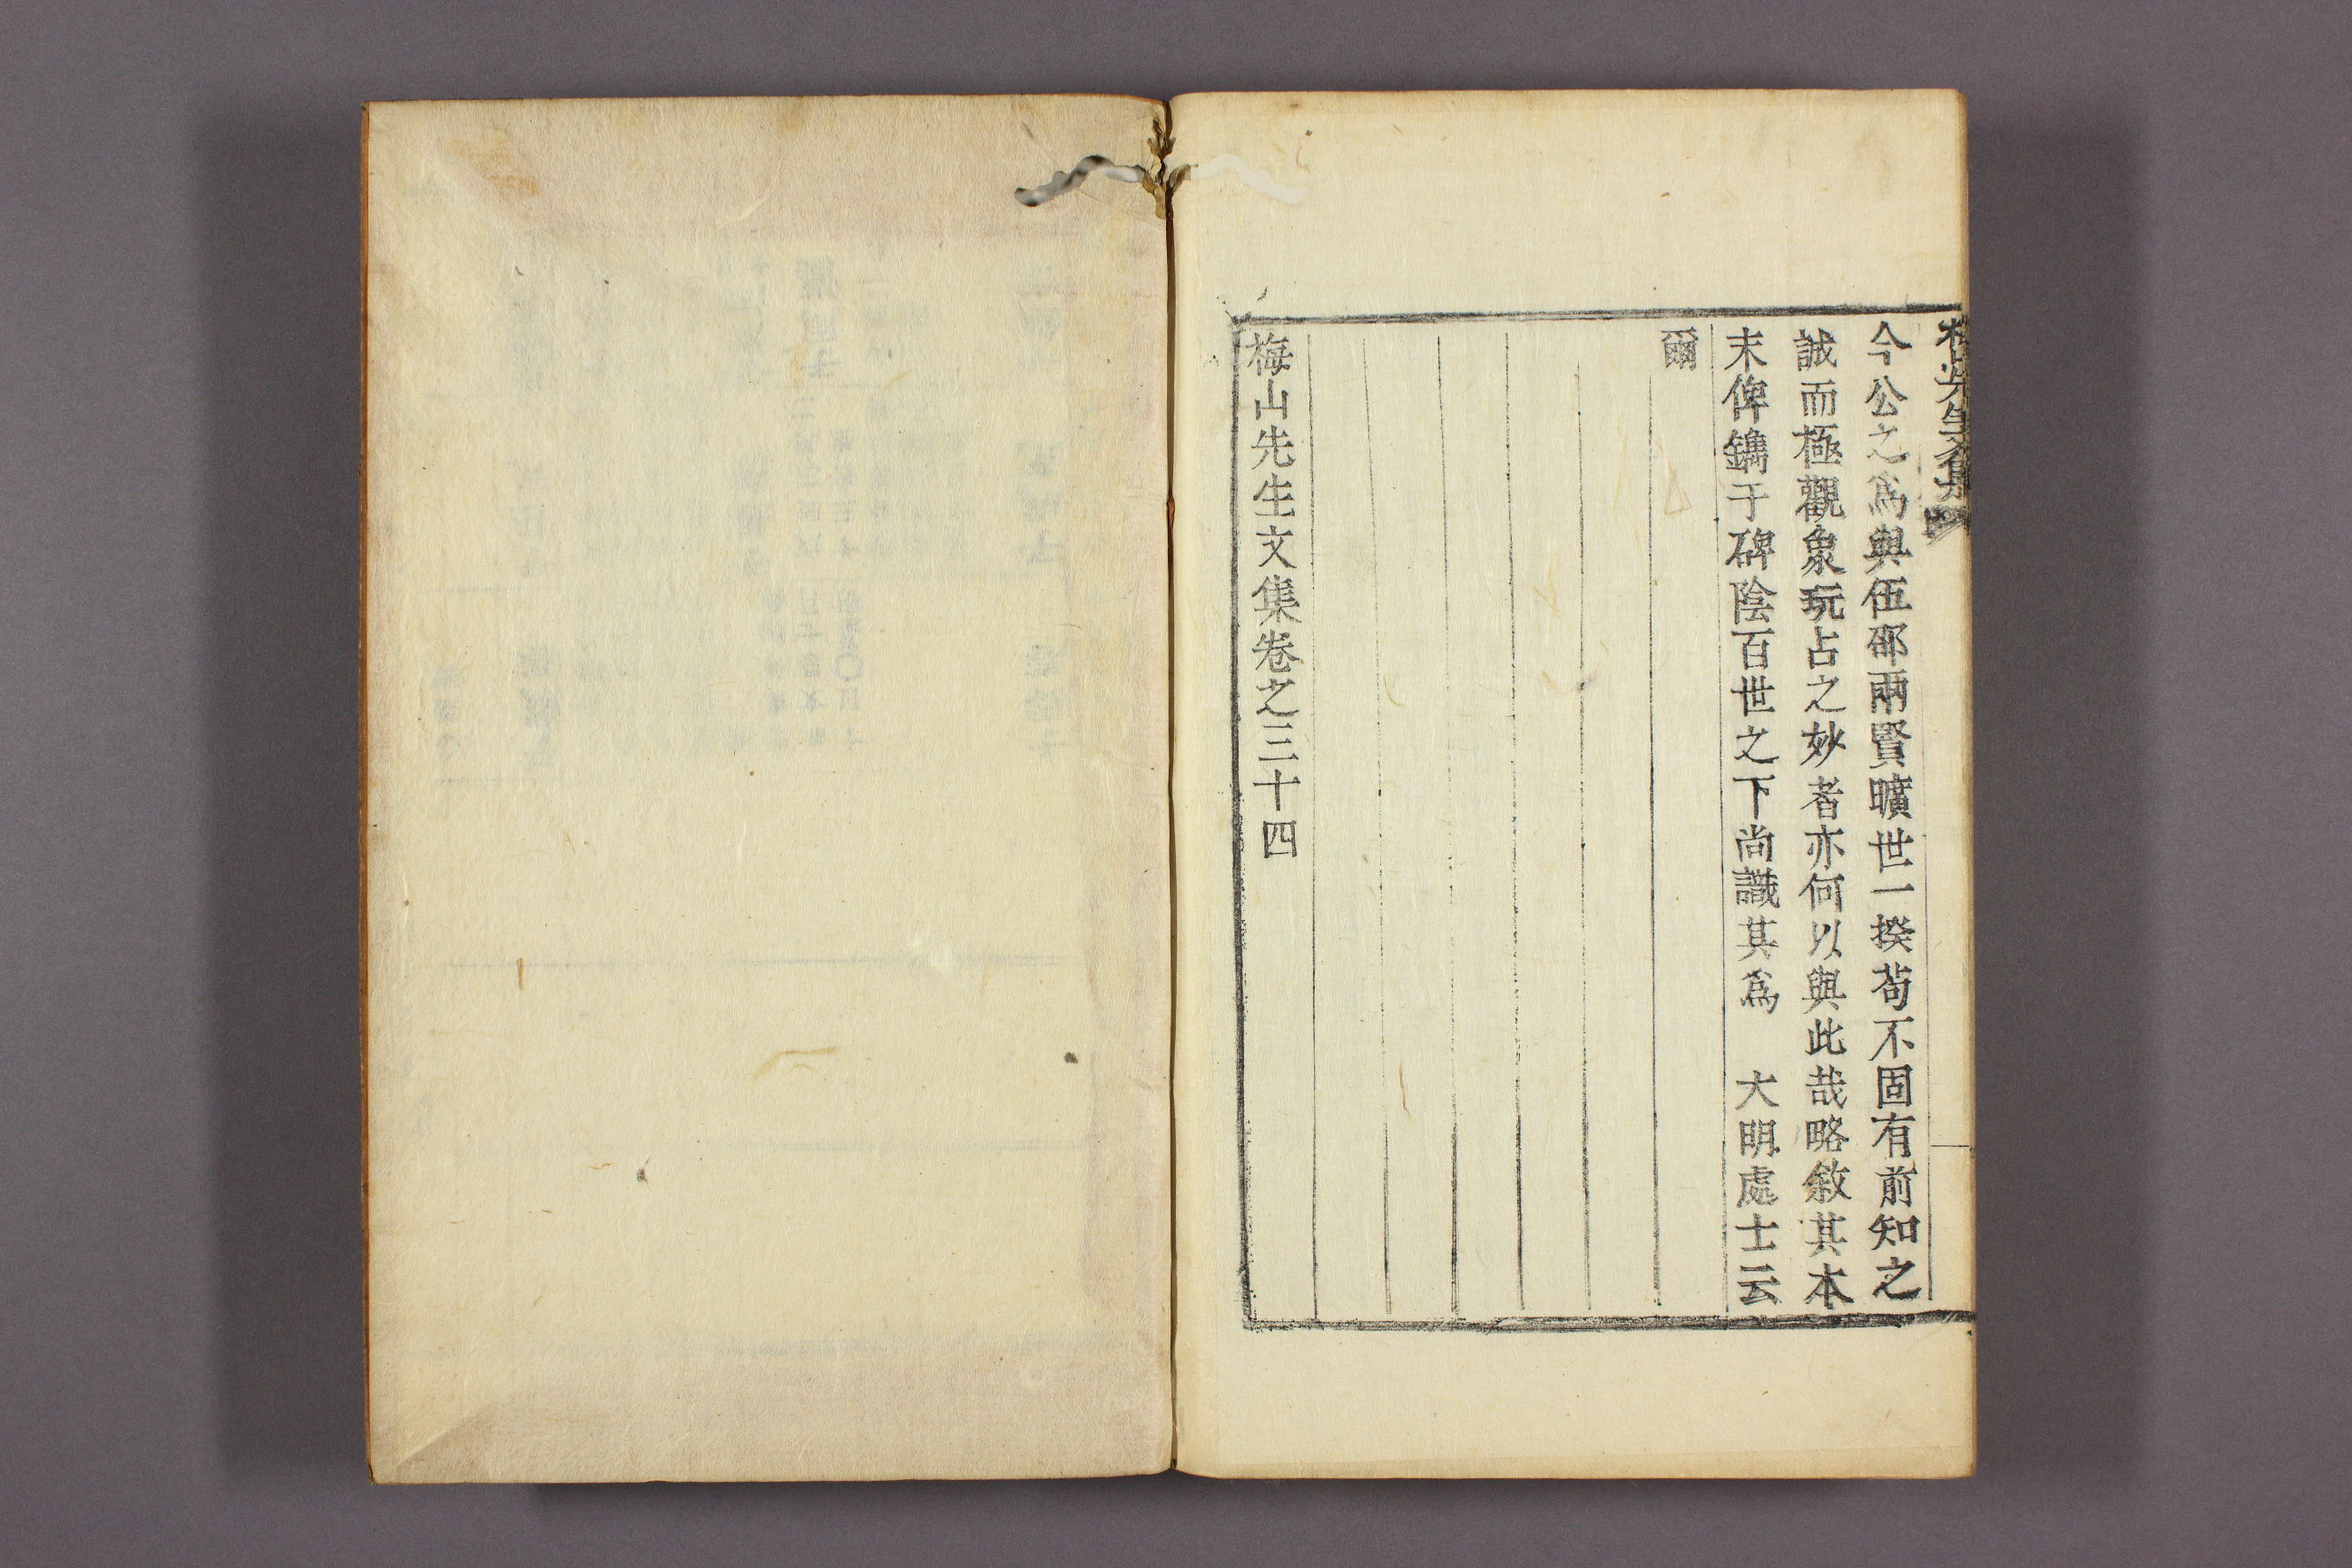 今公之爲與伍邵兩賢曠世一揆苟不固有前知之
誠而極觀象玩占之妙者亦何以與此哉略敘其本
末俾鐫于碑陰百世之下尚識其爲 大明處士云
爾
梅山先生文集卷之三十四